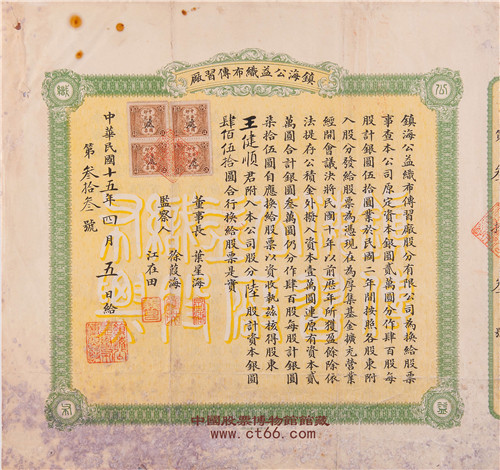 鎮海公益織布傳習廠
鎮海公益織布傳習廠股份有限公司為換給股票
事查本公司原定資本銀圓貳萬圓分作肆百股每
股計銀圓伍拾圓業於民國二年間按照各股東附
入股分發給股票為憑現在為厚集基金擴充營業
經開會議決將民國十年以前歷年所獲盈餘除依
法提存公積金外撥入資本壹萬圓連原有資本貳
萬圓合計銀圓叁萬圓仍分作肆百股每股計銀圓
柒拾伍圓自應換給股票以資收執茲核得股東
王健順君附入本公司股分陸股計資本銀圓
肆佰伍拾圓合行換給股票是實
董事長 葉星海
監察人 徐葭海
江在田
中華民國十五年四月五日給
第叁拾叁號
公
益
織
中國股票博物館館藏
www.ct66.com